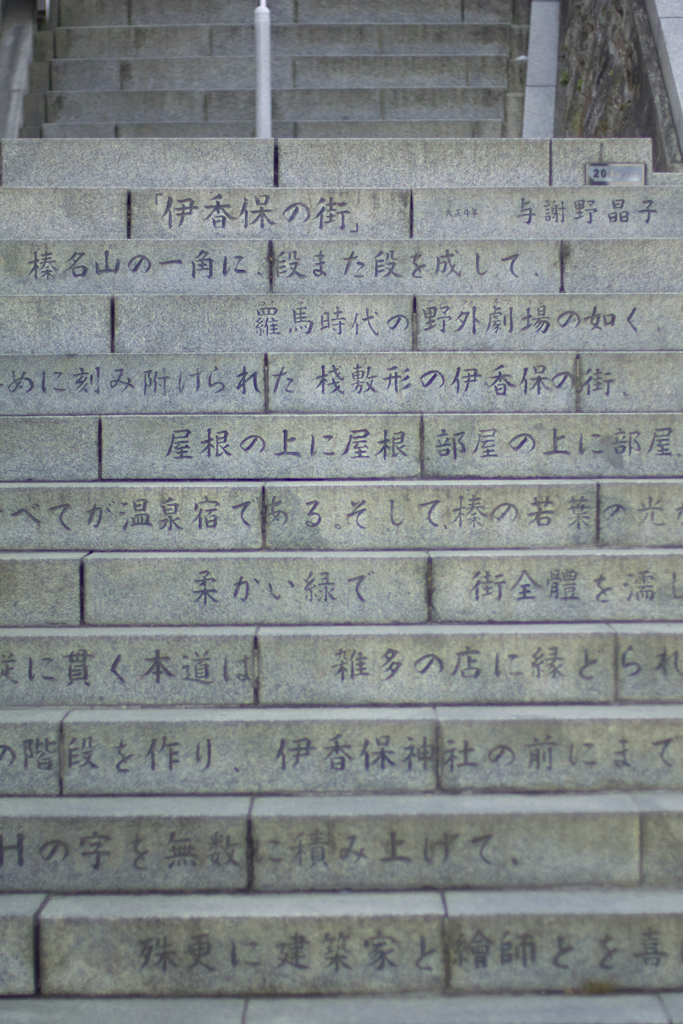 20
「伊香保の街」 大正9年 与謝野晶子
榛名山の一角に、段また段を成して、
羅馬時代の野外劇場の如く、
めに刻み附けられた 棧敷形の伊香保の街、
屋根の上に屋根、部屋の上に部屋、
べてが温泉宿である。そして、榛の若葉の光が
柔かい緑で 街全體を濡し
縦に貫く本道は 雑多の店に縁とられ
の階段を作り、伊香保神社の前にまで
Hの字を無数に積み上げて、
殊更に建築家と繪師とを喜